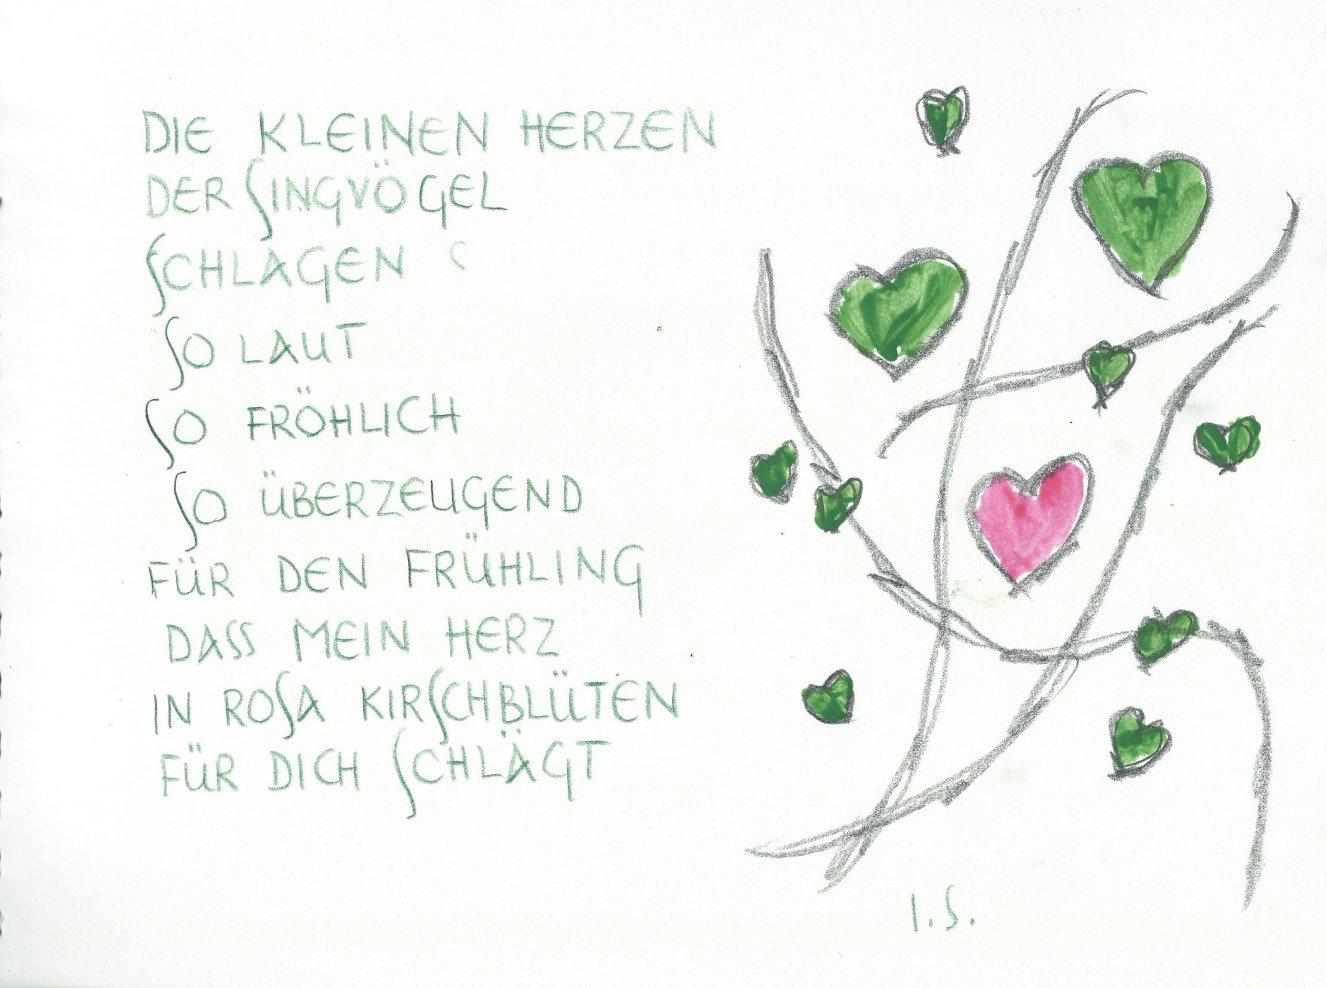 DIE KLEINEN HERZEN
DER SINGVÖGEL
SCHLAGEN
SO LAUT
SO FRÖHLICH
SO ÜBERZEUGEND
FÜR DEN FRÜHLING
DASS MEIN HERZ
IN ROSA KIRSCHBLÜTEN
FÜR DICH SCHLÄGT
I.S.